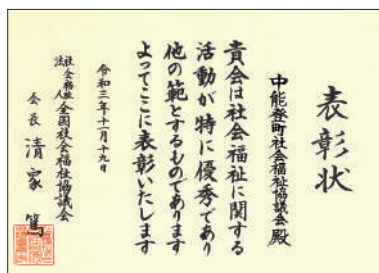 表彰状
中能登町社会福祉協議会殿
貴会は社会福祉に関する
活動が特に優秀であり
他の範とするものであります
よってここに表彰いたします
令和三年十一月十九日
社会福祉法人全国社会福祉協議会
会長 清家 篤